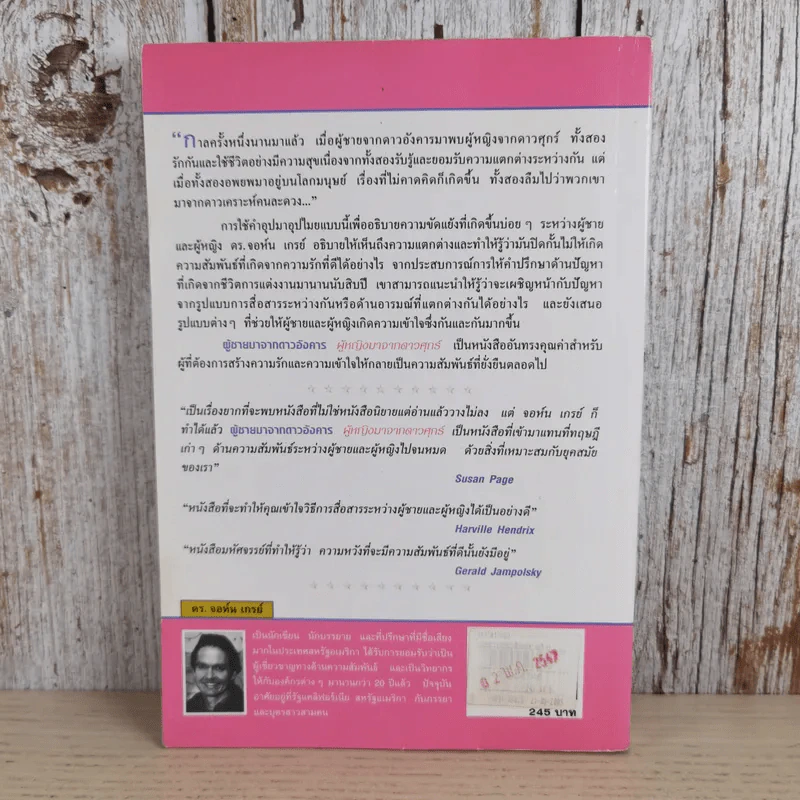 “กาลครั้งหนึ่งนานมาแล้ว เมื่อผู้ชายจากดาวอังคารมาพบผู้หญิงจากดาวศุกร์ ทั้งสอง
รักกันและใช้ชีวิตอย่างมีความสุขเนื่องจากทั้งสองรับรู้และยอมรับความแตกต่างระหว่างกัน แต่
เมื่อทั้งสองอพยพมาอยู่บนโลกมนุษย์ เรื่องที่ไม่คาดคิดก็เกิดขึ้น ทั้งสองลืมไปว่าพวกเขา
มาจากดาวเคราะห์คนละดวง...”
การใช้คำอุปมาอุปไมยแบบนี้เพื่ออธิบายความขัดแย้งที่เกิดขึ้นบ่อย ๆ ระหว่างผู้ชาย
และผู้หญิง ดร.จอห์น เกรย์ อธิบายให้เห็นถึงความแตกต่างและทำให้รู้ว่ามันปิดกั้นไม่ให้เกิด
ความสัมพันธ์ที่เกิดจากความรักที่ดีได้อย่างไร จากประสบการณ์การให้คำปรึกษาด้านปัญหา
ที่เกิดจากชีวิตการแต่งงานมานานนับสิบปี เขาสามารถแนะนำให้รู้ว่าจะเผชิญหน้ากับปัญหา
จากรูปแบบการสื่อสารระหว่างกันหรือด้านอารมณ์ที่แตกต่างกันได้อย่างไร และยังเสนอ
รูปแบบต่าง ๆ ที่ช่วยให้ผู้ชายและผู้หญิงเกิดความเข้าใจซึ่งกันและกันมากขึ้น
ผู้ชายมาจากดาวอังคาร ผู้หญิงมาจากดาวศุกร์ เป็นหนังสืออันทรงคุณค่าสำหรับ
ผู้ที่ต้องการสร้างความรักและความเข้าใจให้กลายเป็นความสัมพันธ์ที่ยั่งยืนตลอดไป
“เป็นเรื่องยากที่จะพบหนังสือที่ไม่ใช่หนังสือนิยายแต่อ่านแล้ววางไม่ลง แต่ จอห์น เกรย์ ก็
ทำได้แล้ว ผู้ชายมาจากดาวอังคาร ผู้หญิงมาจากดาวศุกร์ เป็นหนังสือที่เข้ามาแทนที่ทฤษฎี
เก่า ๆ ด้านความสัมพันธ์ระหว่างผู้ชายและผู้หญิงไปจนหมด ด้วยสิ่งที่เหมาะสมกับยุคสมัย
ของเรา”
Susan Page
“หนังสือที่จะทำให้คุณเข้าใจวิธีการสื่อสารระหว่างผู้ชายและผู้หญิงได้เป็นอย่างดี”
Harville Hendrix
“หนังสือมหัศจรรย์ที่ทำให้รู้ว่า ความหวังที่จะมีความสัมพันธ์ที่ดีนั้นยังมีอยู่”
Gerald Jampolsky
ดร. จอห์น เกรย์
เป็นนักเขียน นักบรรยาย และที่ปรึกษาที่มีชื่อเสียง
มากในประเทศสหรัฐอเมริกา ได้รับการยอมรับว่าเป็น
ผู้เชี่ยวชาญทางด้านความสัมพันธ์ และเป็นวิทยากร
ให้กับองค์กรต่าง ๆ มานานกว่า 20 ปีแล้ว ปัจจุบัน
อาศัยอยู่ที่รัฐแคลิฟอร์เนีย สหรัฐอเมริกา กับภรรยา
และบุตรสาวสามคน
02 พ.ค. 2547
245 บาท